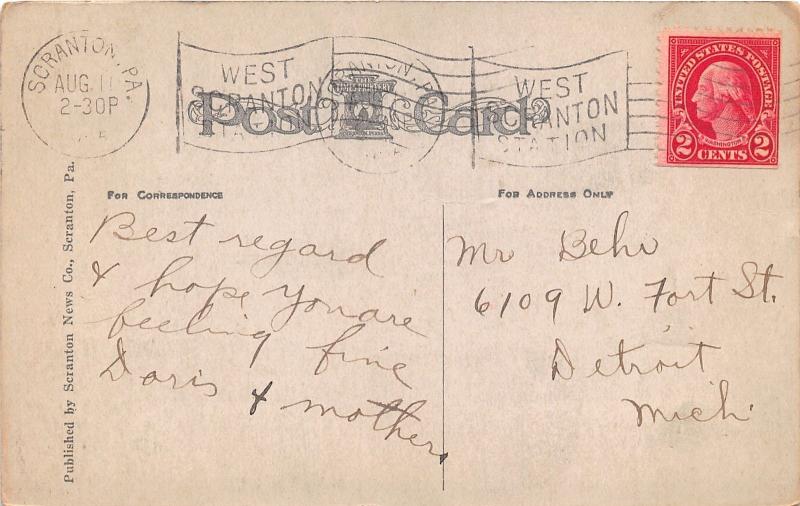 SCRANTON, PA.
AUG. 11
2-30P
WEST
SCRANTON
STATION
WEST
SCRANTON
STATION
UNITED STATES POSTAGE
WASHINGTON
2 CENTS 2
Post Card
FOR CORRESPONDENCE
FOR ADDRESS ONLY
Best regard
& hope you are
feeling fine
Doris & mother
Mr Behr
6109 W. Fort St.
Detroit
Mich.
Published by Scranton News Co., Scranton, Pa.